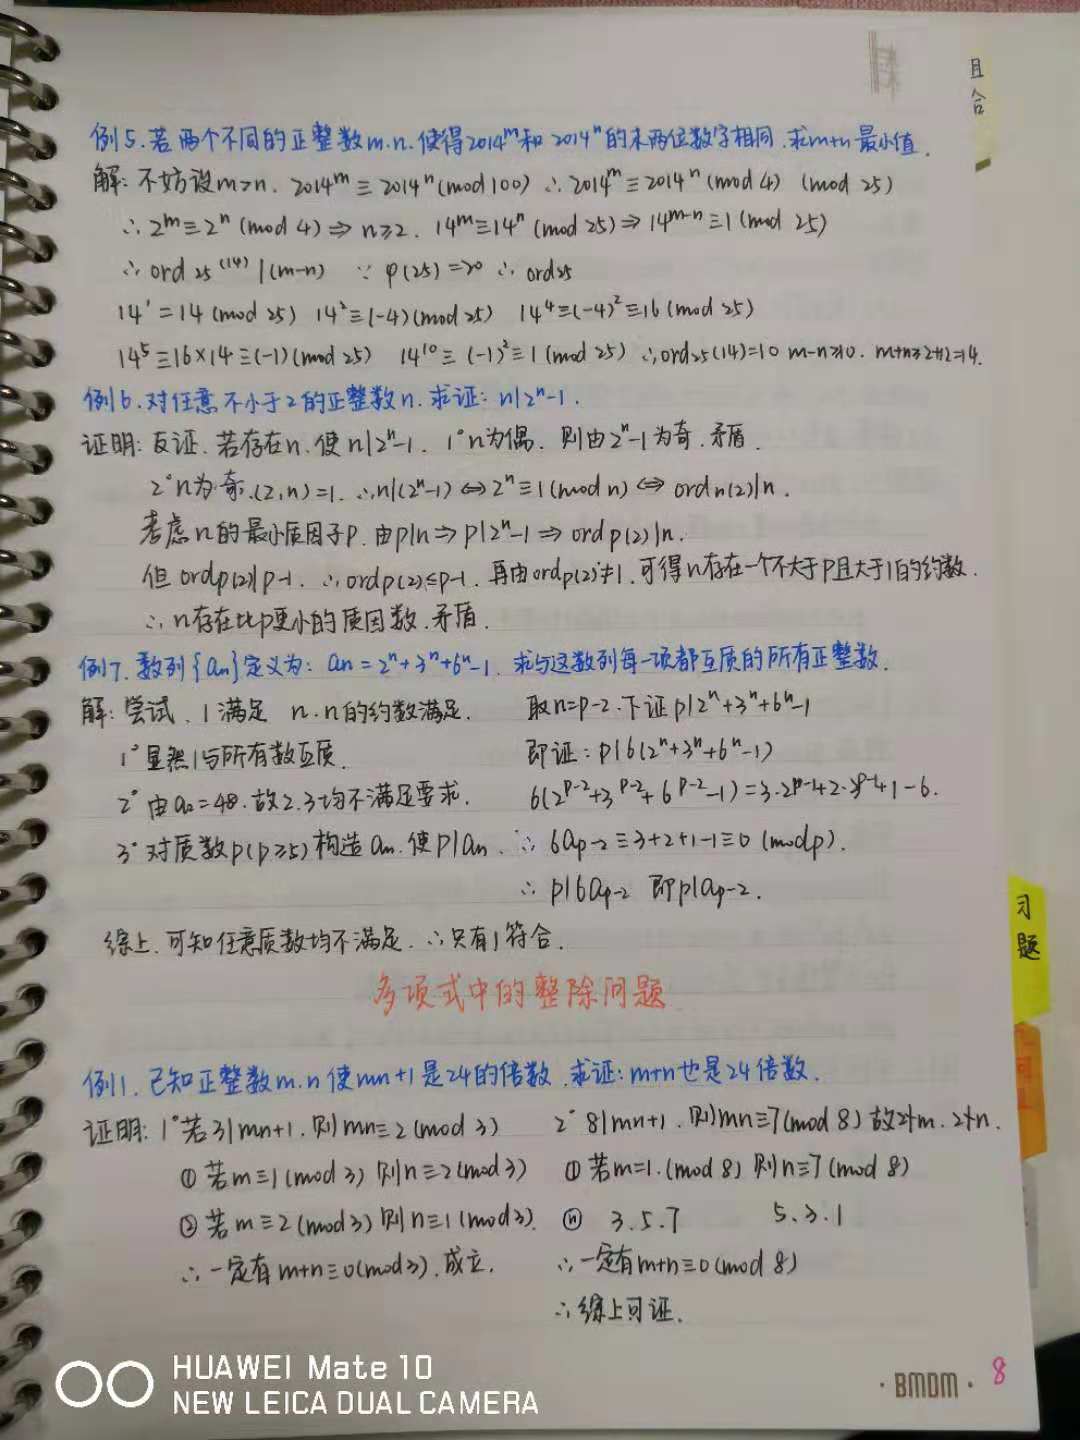 且
合
例5.若两个不同的正整数m.n.使得2014^m和2014^n的末两位数字相同.求m+n最小值.
解:不妨设m>n. 2014^m≡2014^n(mod100) ∴2014^m≡2014^n(mod 4) (mod 25)
∴2^m≡2^n(mod 4)⇒n≥2. 14^m≡14^n(mod 25)⇒14^{m-n}≡1(mod 25)
∴ord_25(14)|(m-n) ∵φ(25)=20 ∴ord25
14^1=14(mod 25) 14^2≡(-4)(mod 25) 14^4≡(-4)^2≡16(mod 25)
14^5≡16×14≡(-1)(mod 25) 14^10≡(-1)^2≡1(mod 25) ∴ord_25(14)=10 m-n≥10. m+n≥2+12=14.
例6.对任意不小于2的正整数n.求证:n|2^n-1.
证明:反证.若存在n.使n|2^n-1. 1°n为偶.则由2^n-1为奇.矛盾.
2°n为奇.(2,n)=1.∴n|(2^n-1)⇔2^n≡1(mod n)⇔ord_n(2)|n.
考虑n的最小质因子p.由p|n⇒p|2^n-1⇒ord_p(2)|n.
但ord_p(2)|p-1.∴ord_p(2)≤p-1.再由ord_p(2)≠1.可得n存在一个不大于p且大于1的约数.
∴n存在比p更小的质因数.矛盾.
例7.数列{an}定义为:an=2^n+3^n+6^n-1.求与这数列每一项都互质的所有正整数.
解:尝试.1满足 n.n的约数满足. 取n=p-2.下证p|2^n+3^n+6^n-1
1°显然1与所有数互质. 即证:p|6(2^n+3^n+6^n-1)
2°由a2=48.故2.3均不满足要求. 6(2^{p-2}+3^{p-2}+6^{p-2}-1)=3·2^{p-1}+2·3^{p-1}+1-6.
3°对质数p(p≥5)构造an.使p|an. ∴6a_{p-2}≡3+2+1-1≡0(modp).
∴p|6a_{p-2} 即p|a_{p-2}.
综上.可知任意质数均不满足.∴只有1符合.
习
题
多项式中的整除问题
例1.已知正整数m.n使mn+1是24的倍数.求证:m+n也是24倍数.
证明:1°若3|mn+1.则mn≡2(mod 3) 2°8|mn+1.则mn≡7(mod 8)故2∤m.2∤n.
①若m≡1(mod 3)则n≡2(mod 3) ①若m=1.(mod 8)则n≡7(mod 8)
②若m≡2(mod3)则n≡1(mod3). ⓝ 3.5.7 5.3.1
∴一定有m+n≡0(mod3).成立. ∴一定有m+n≡0(mod 8)
∴综上可证.
HUAWEI Mate 10
NEW LEICA DUAL CAMERA
·BMDM· 8